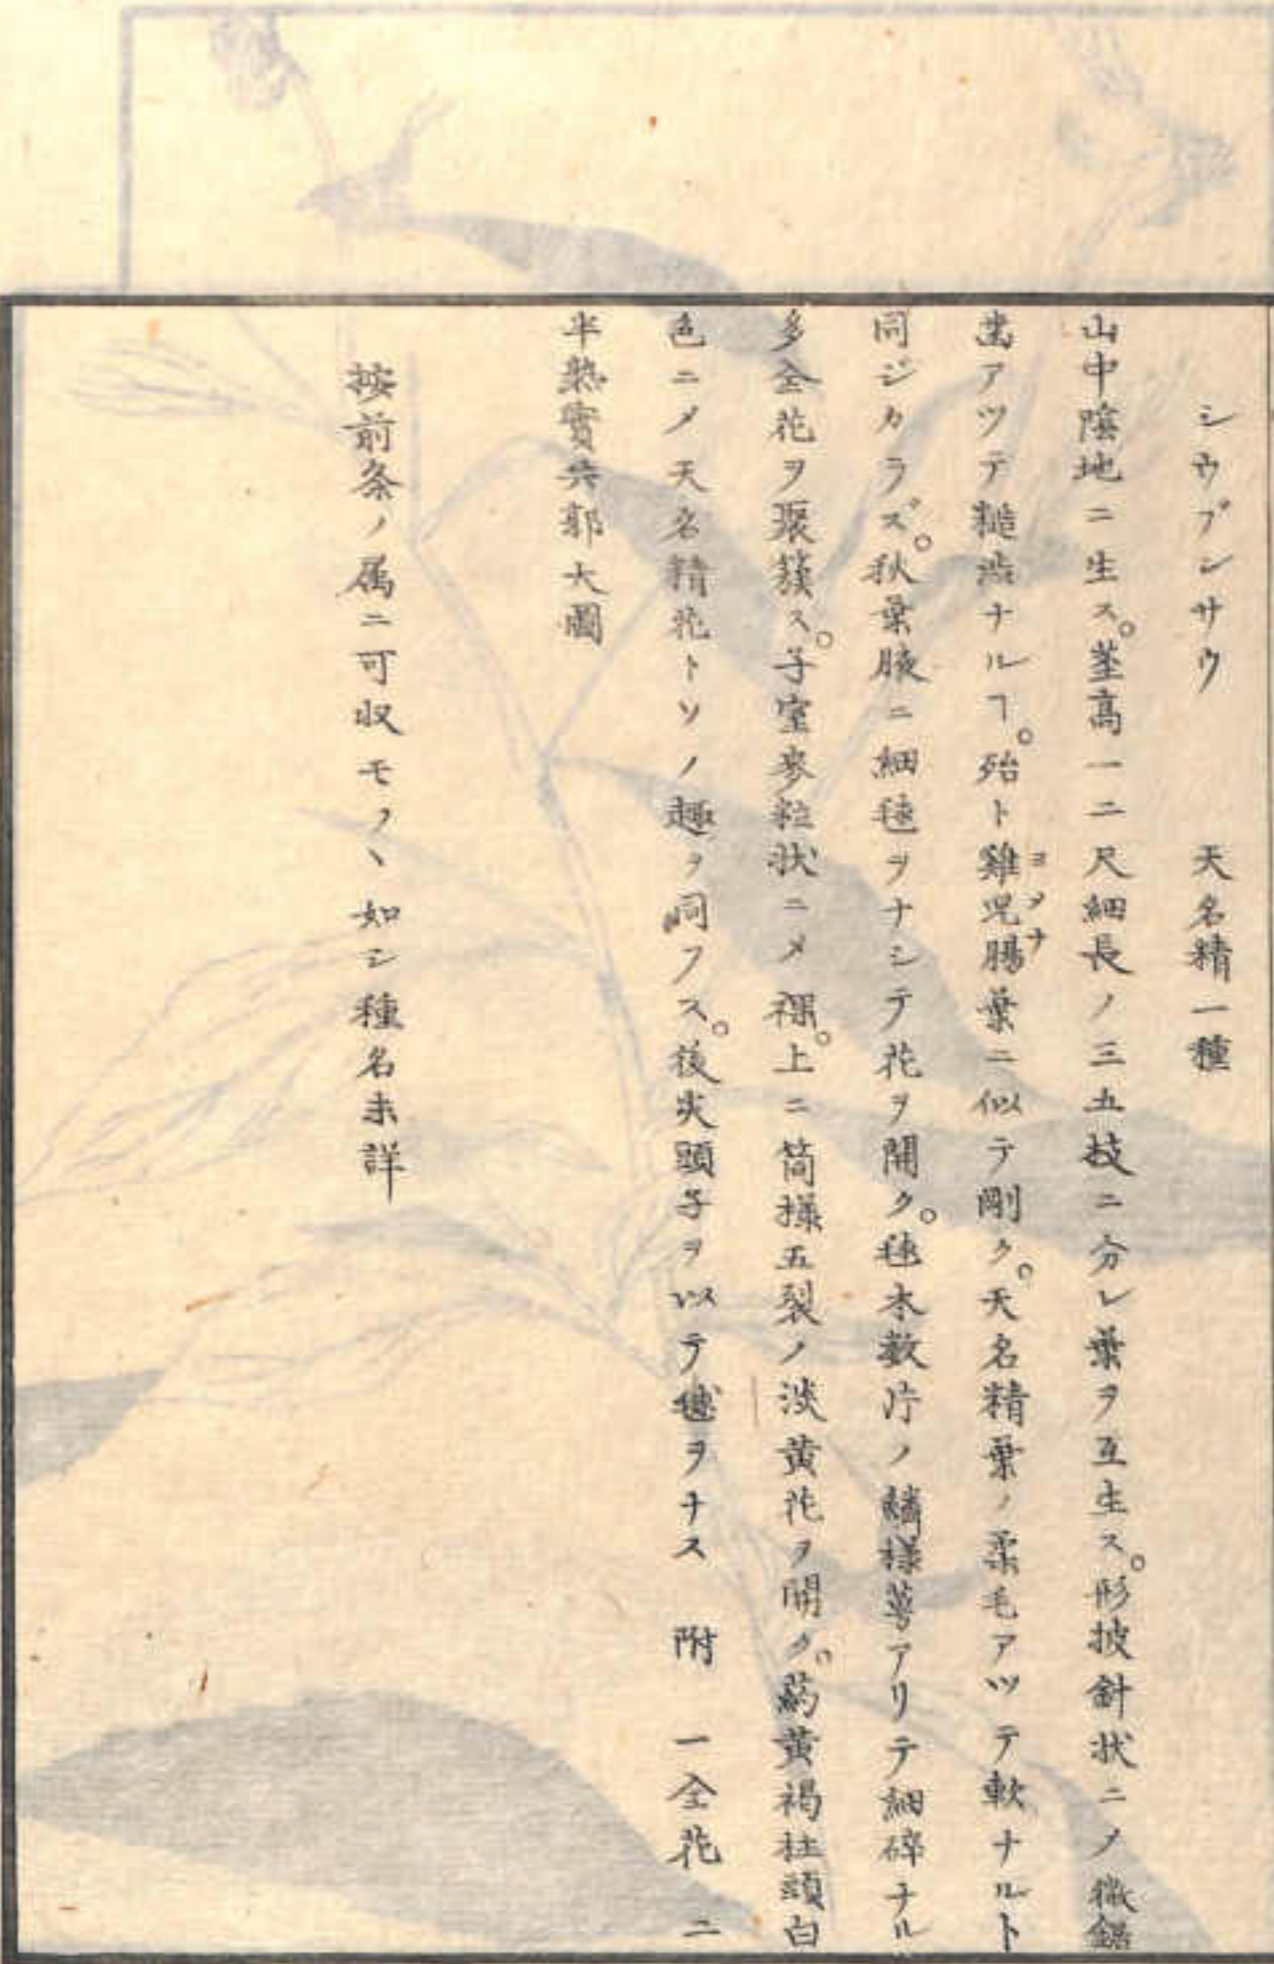 シウブンサウ　天名精一種
山中陰地ニ生ス。茎高一二尺細長ノ三五枝ニ分レ葉ヲ互生ス。形披針状ニメ微鋸
歯アツテ糙渋ナルヿ。殆ト雞児腸葉ニ似テ剛ク。天名精葉ノ柔毛アツテ軟ナルト
ヨメナ
同ジカラズ。秋葉腋ニ細毬ヲナシテ花ヲ開ク。毬本数片ノ鱗様萼アリテ細砕ナル
多全花ヲ環簇ス。子室麥粒状ニメ裸。上ニ筒様五裂ノ淡黄花ヲ開ク。葯黄褐柱頭白
色ニメ天名精花トソノ趣ヲ同フス。後尖頭子ヲ以テ毬ヲナス　附　一全花　二
半熟實共郭大圖
按前条ノ属ニ可収モノヽ如シ種名未詳